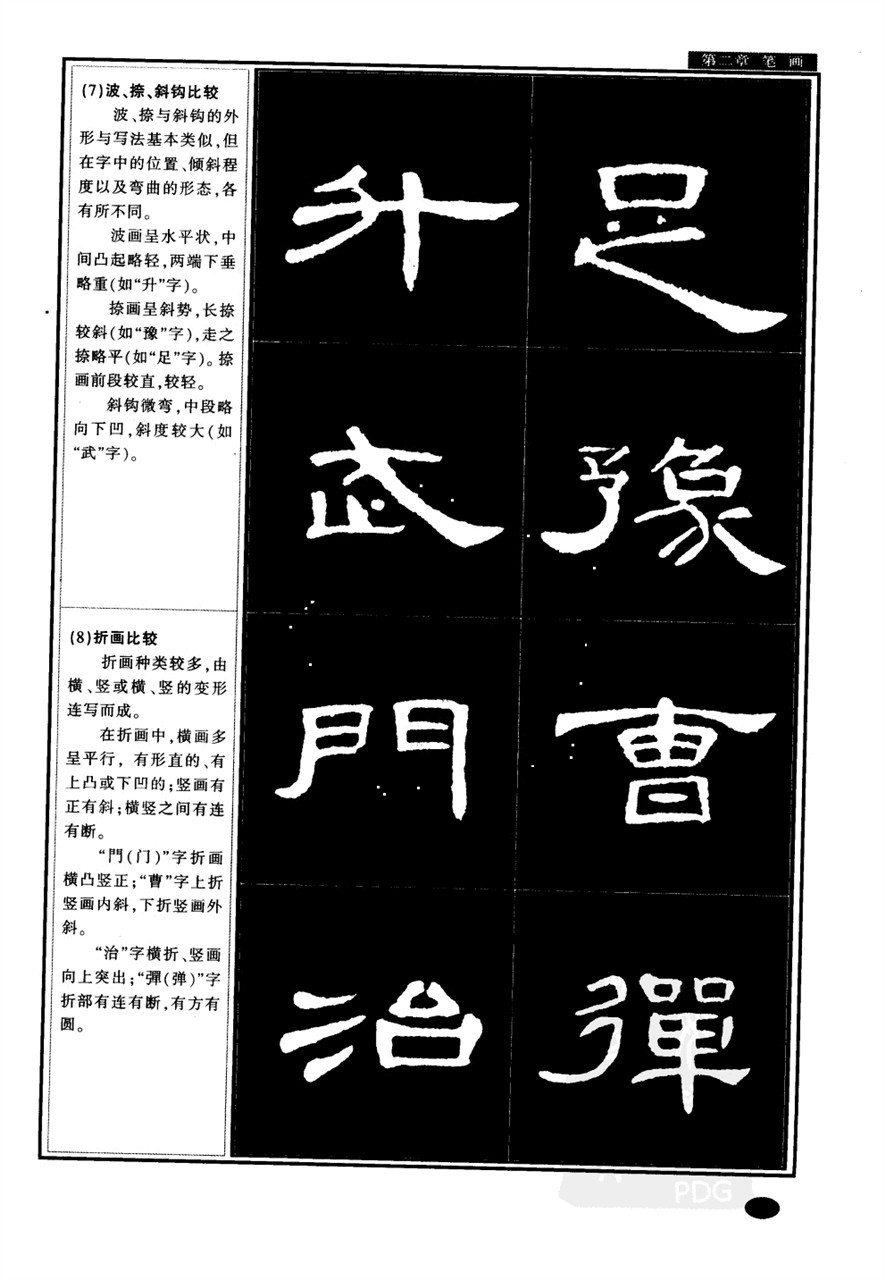 第二章 笔 画
(7)波、捺、斜钩比较
波、捺与斜钩的外
形与写法基本类似,但
在字中的位置、倾斜程
度以及弯曲的形态,各
有所不同。
波画呈水平状,中
间凸起略轻,两端下垂
略重(如“升”字)。
捺画呈斜势,长捺
较斜(如“豫”字),走之
捺略平(如“足”字)。捺
画前段较直,较轻。
斜钩微弯,中段略
向下凹,斜度较大(如
“武”字)。
(8)折画比较
折画种类较多,由
横、竖或横、竖的变形
连写而成。
在折画中,横画多
呈平行,有形直的、有
上凸或下凹的;竖画有
正有斜;横竖之间有连
有断。
“門(门)”字折画
横凸竖正;“曹”字上折
竖画内斜,下折竖画外
斜。
“治”字横折、竖画
向上突出;“彈(弹)”字
折部有连有断,有方有
圆。
升 足
武 豫
門 曹
治 彈
PDG